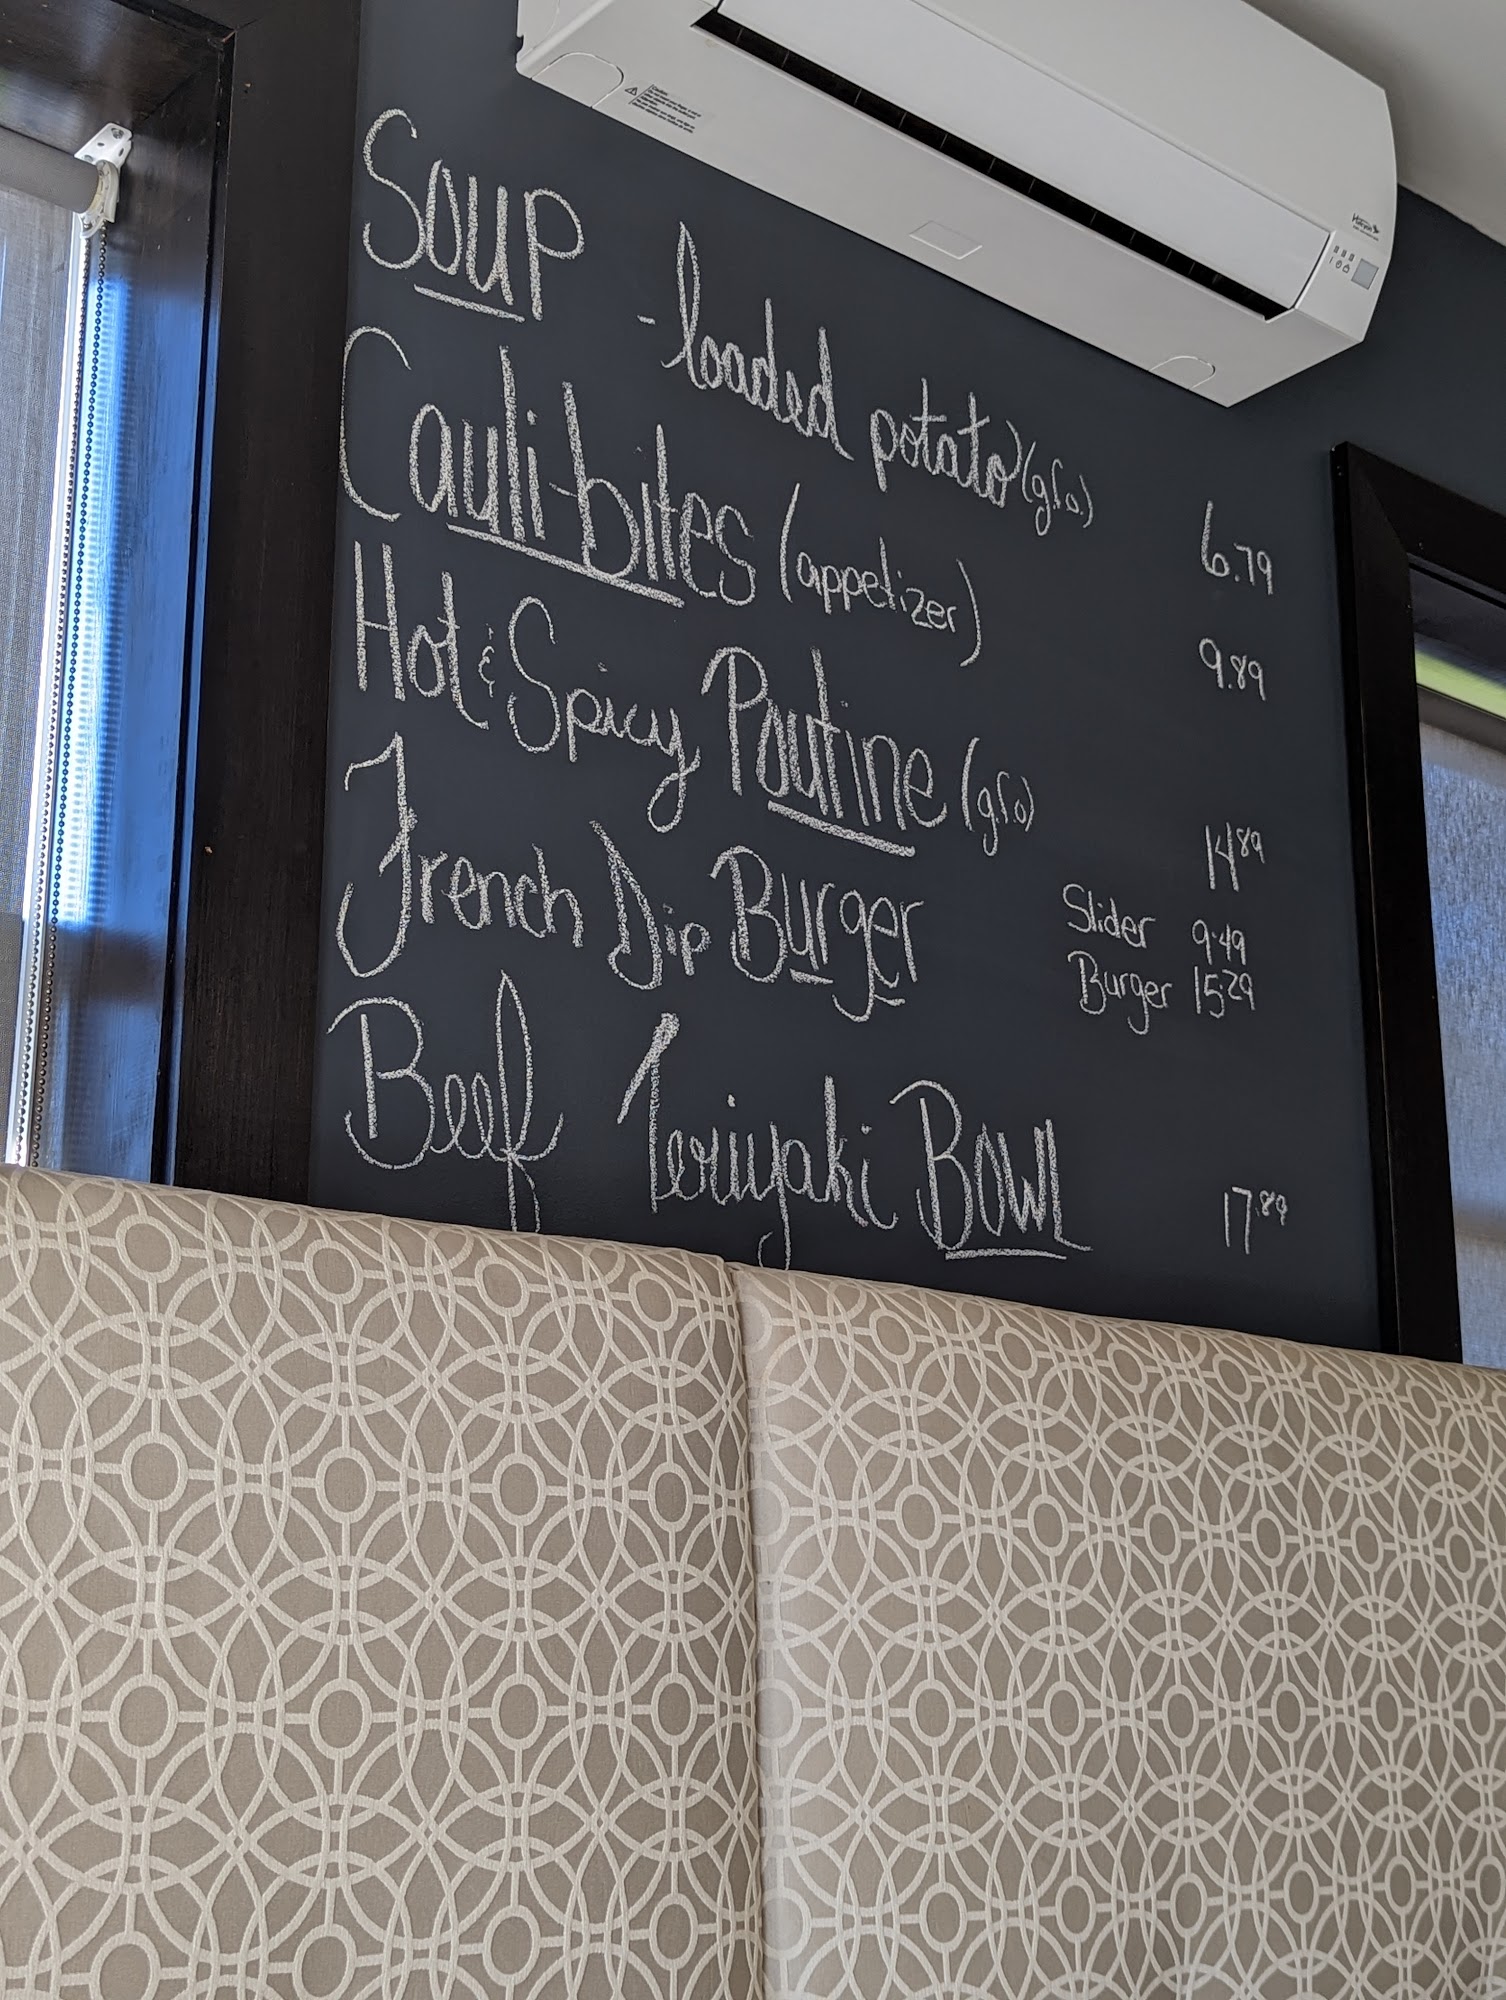 Soup -loaded potato (g.f.o.) 6.79
Cauli-bites (appetizer) 9.89
Hot & Spicy Poutine (g.f.o) 14.89
French Dip Burger Slider 9.49
Burger 15.29
Beef Teriyaki Bowl 17.89